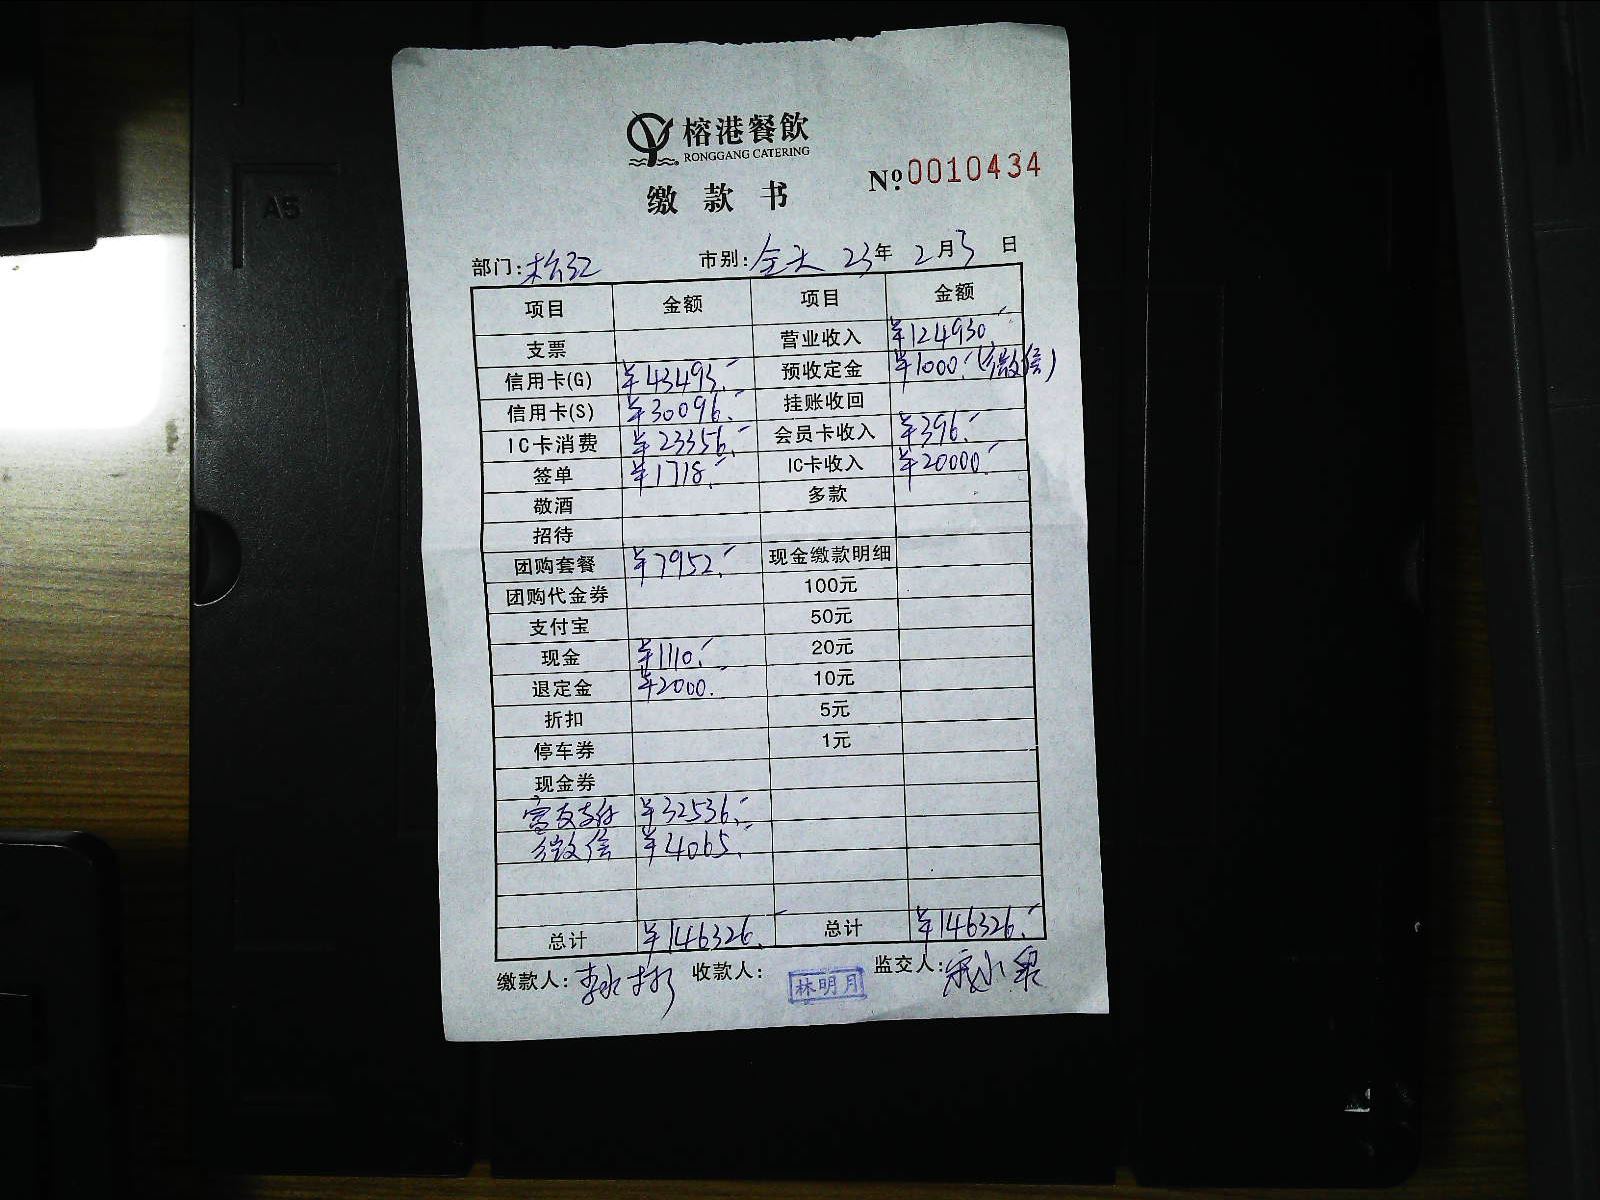 A5
榕港餐飲
RONGGANG CATERING
№ 0010434
缴款书
部门: 松江 市别: 全天 23年 2月3日
项目 金额 项目 金额
支票 营业收入 ¥124930.-
信用卡(G) ¥43493.- 预收定金 ¥1000.-(微信)
信用卡(S) ¥30096.- 挂账收回
IC卡消费 ¥23356.- 会员卡收入 ¥396.-
签单 ¥1718.- IC卡收入 ¥20000.-
敬酒 多款
招待
团购套餐 ¥7952.- 现金缴款明细
团购代金券 100元
支付宝 50元
现金 ¥1110.- 20元
退定金 ¥2000.- 10元
折扣 5元
停车券 1元
现金券
富友支付 ¥32536.-
微信 ¥4065.-
总计 ¥146326.- 总计 ¥146326.-
缴款人: 收款人: 林明月 监交人: